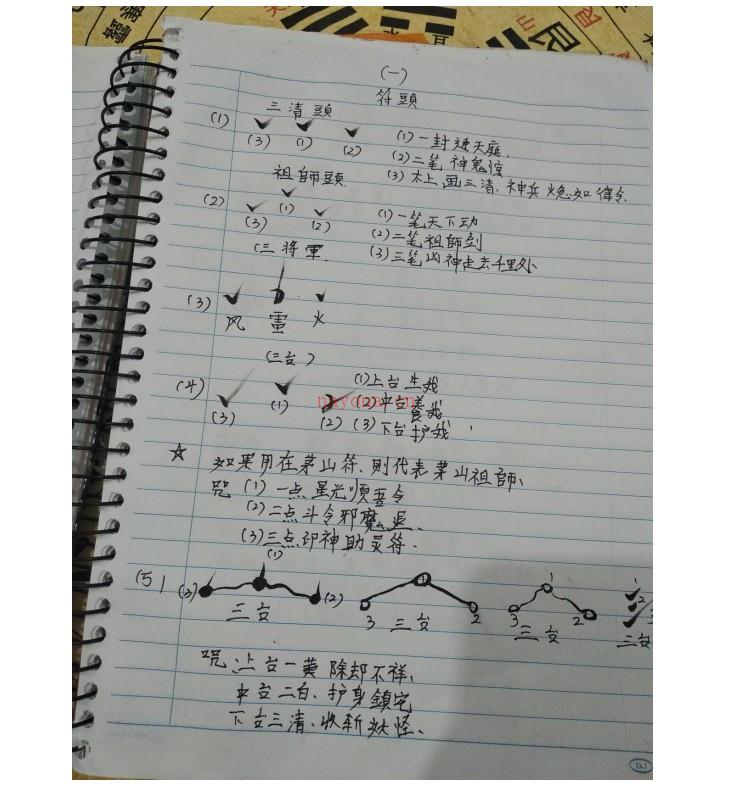 (一)
符頭
三清頭
(1) (3) (1) (2)
(1) 一封速天庭.
(2) 二笔神鬼惊
(3) 太上画三清、神兵火急如律令.
祖師頭
(2) (3) (1) (2)
(1) 一笔天下动
(2) 二笔祖師剑
(3) 三笔凶神走去千里处
(三将軍.
(3) 风 雷 火
(三台)
(4) (3) (1) (2)
(1) 上台生我
(2) 中台養我
(3) 下台护我
☆ 如果用在茅山符、則代表茅山祖師、
咒 (1) 一点星光順吾令
(2) 二点斗令邪魔退.
(3) 三点印神助灵符.
(5) (3) (1) (2) 3 2 3 1 2 1 2 3
三台 三台 三台 三台
咒: 上台一黄 除却不祥、
中台二白、护身鎮宅
下台三清、收斩妖怪、
艮